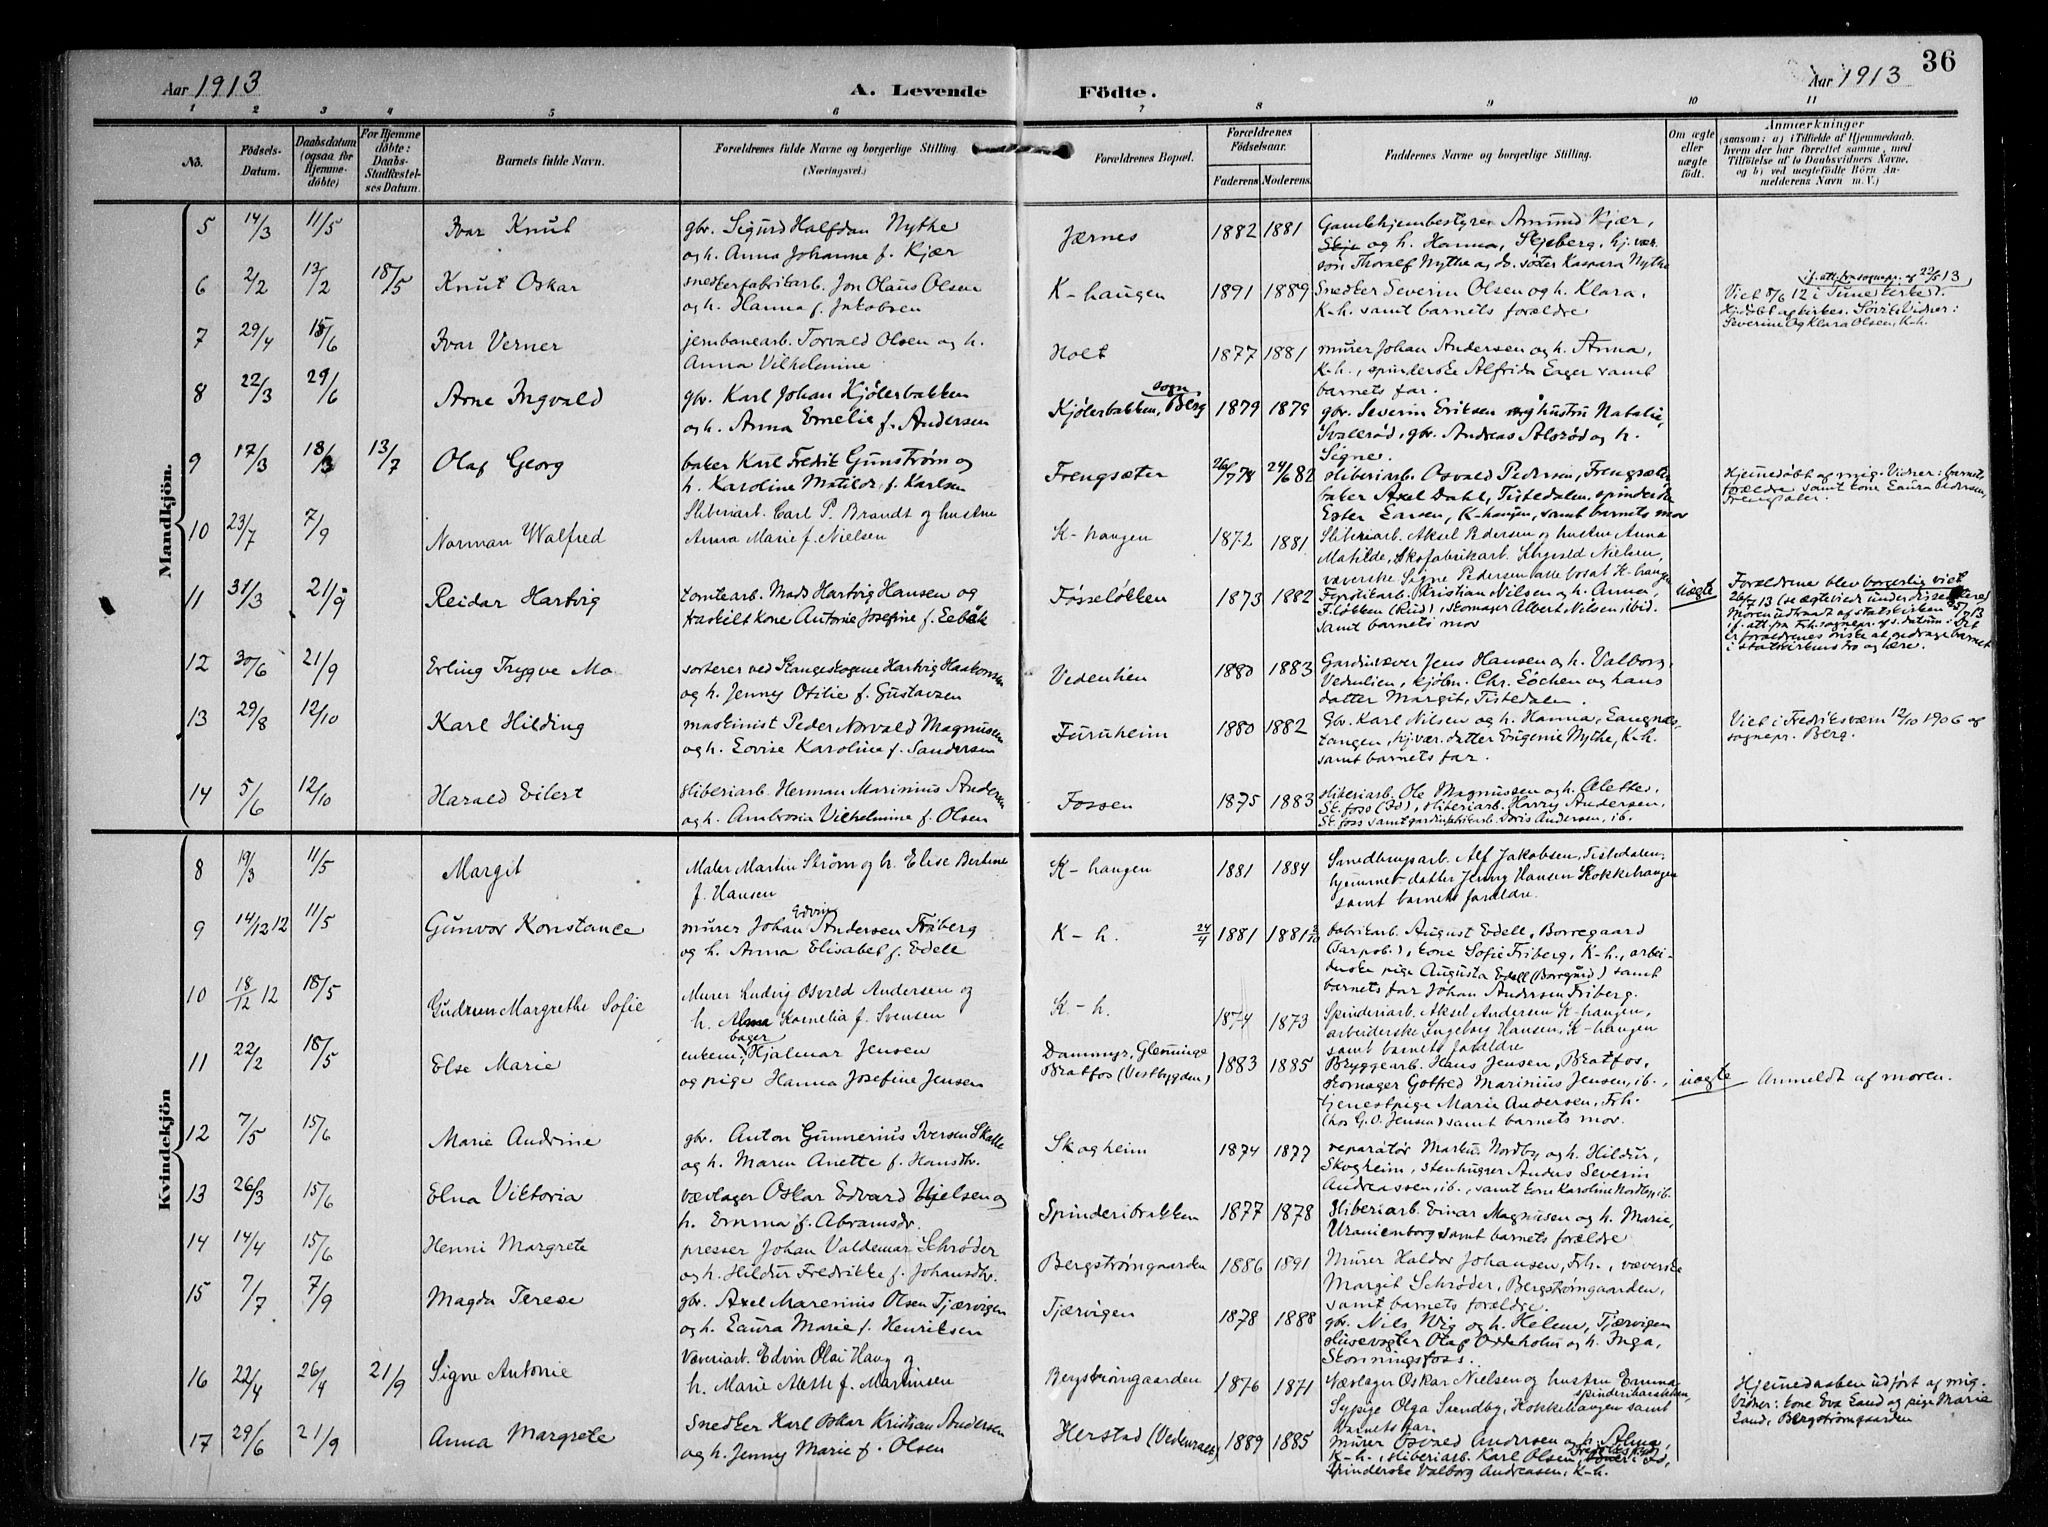 36
Aar 1913 A. Levende Födte. Aar 1913
1 2 3 4 5 6 7 8 9 10 11
No. Födsels-Datum. Daabsdatum (ogsaa for Hjemme-döbte) For Hjemme döbte: Daabs-Stadfæstel-ses Datum. Barnets fulde Navn. Forældrenes fulde Navne og borgerlige Stilling. (Næringsvei.) Forældrenes Bopæl. Forældrenes Födselsaar. Faderens Moderens. Faddernes Navne og borgerlige Stilling. Om ægte eller uægte födt. Anmærkninger (saasom: a) i Tilfælde af Hjemmedaab, hvem der har forrettet samme, med Tilföielse af to Daabsvidners Navne, og b) ved uægtefödte Börn An-melderens Navn m. V.)
Mandkjön.
5 14/3 11/5 Ivar Knut gbr. Sigurd Halfdan Nythe Jærnes 1882 1881 Gamlehjembestyrer Amund Kjær,
og h. Anna Johanne f. Kjær og h. Hanna, Skjeberg, hj.vær.
søn Thoralf Nythe og do. søster Kaspara Nythe
6 2/2 13/2 18/5 Knut Oskar snedkerfabrikarb. Jon Olaus Olsen K-haugen 1891 1889 Snedker Severin Olsen og h. Klara, Viet 8/6 12 i Tune kirke if. att. fra sognepr. af 22/5 13
og h. Hanna f. Jakobsen K-h. samt barnets forældre Severine og Klara Olsen, K-h.
7 29/4 15/6 Ivar Verner jernbanearb. Torvald Olsen og h. Holt 1877 1881 murer Johan Andersen og h. Anna,
Anna Vilhelmine K-h., spinderske Alfrida Lager samt
barnets far.
8 22/3 29/6 Arne Ingvald gbr. Karl Johan Kjølerbakken Kjølerbakken, Berg sogn 1879 1879 gbr. Severin Eriksen og hustru Natalie,
og h. Anna Emelie f. Andersen Svalerød, gbr. Andreas Alsrød og h.
Signe.
9 17/3 18/3 13/7 Olaf Georg baker Karl Fredik Gunstrøm og Frengsæter 26/7 78 24/6 82 sliberiarb. Osvald Pedersen, Frengsæter Hjemedøbt af mig. Vidner: barnets
h. Karoline Matilde f. Karlsen baker Axel Dahl, Tistedalen, spinderske forældre samt kone Laura Pedersen,
Ester Larsen, K-haugen, samt barnets mor Frengsæter.
10 23/7 7/9 Norman Walfred Sliberiarb. Carl P. Brandt og hustru K-haugen 1872 1881 Sliberiarb. Aksel Pedersen og hustru Anna
Anna Marie f. Nielsen Matilde, skofabrikarb. Nielsen,
væverske Signe Pedersen alle bosat K-haugen
11 31/3 21/9 Reidar Hartvig tomtearb. Mads Hartvig Hansen og Føsseløkken 1873 1882 Kristian Nilsen og h. Anna, uægte Forældrene blev borgerlig viet
fraskilt kone Antonie Josefine f. Lebåk F.løkken (Rud), skomager Albert Nilsen, ibid. 26/7 13
samt barnets mor
12 30/6 21/9 Erling Trygve Mo sorterer ved Stangeskogene Hartvig Haakonsen Vedenlien 1880 1883 Gardinvæver Jens Hansen og h. Valborg,
og h. Jenny Otilie f. Gustavsen Vedenlien, kjøbm. Chr. Løchen og hans
datter Margit, Tistedalen.
13 29/8 12/10 Karl Hilding maskinist Peder Norvald Magnussen Furuheim 1880 1882 Gbr. Karl Nilsen og h. Hanna, Langnæs- Viet i Fredriksværn 12/10 1906 af
og h. Lovise Karoline f. Sandersen tangen, hj.vær. datter Eugenie Nythe, K-h. sognepr. Berg.
samt barnets far.
14 5/6 12/10 Harald Eilert sliberiarb. Herman Marinius Andersen Fossen 1875 1883 sliberiarb. Ole Magnussen og h. Alette,
og h. Ambrosia Vilhelmine f. Olsen Sk.foss (Id), sliberiarb. Harry Andersen,
Sk.foss samt gardinfabrikarb. Doris Andersen, ib.
Kvindekjön
8 19/3 11/5 Margit Maler Martin Strøm og h. Elise Bertine K-haugen 1881 1884 Sandtagsarb. Alf Jakobsen, Tistedalen,
f. Hansen hjemmev. datter Jenny Hansen Kokkehaugen
samt barnets forældre.
9 14/12 12 11/5 Gunvor Konstance murer Johan Edvin Andersen Friberg K-h. 24/4 1881 1881 fabrikarb. August Edell, Borregaard
og h. Anna Elisabet f. Edell (Sarpsb.), kone Sofie Friberg, K-h., arbei-
derske pige Augusta Edell (Borregård) samt
barnets far Johan Andersen Friberg.
10 18/12 12 18/5 Gudrun Margrethe Sofie Murer Ludvig Osvald Andersen og K-h. 1874 1873 Spinderiarb. Aksel Andersen K-haugen,
h. Alma Kornelia f. Svensen arbeiderske Ingeborg Hansen, K-haugen
samt barnets forældre
11 22/2 18/5 Else Marie enkem. bager Hjalmar Jensen Dammyr, Glenninge 1883 1885 Bryggearb. Hans Jensen, Bratfos, uægte Anmeldt af moren.
og pige Hanna Josefine Jensen Bratfos (Vestbygden) skomager Gotfred Marinius Jensen, ib.,
tjenestpige Marie Andersen, Frh.
(hos G.O. Jensen) samt barnets mor.
12 7/5 15/6 Marie Andrine gbr. Anton Gunnerius Iversen Skalle Skogheim 1874 1877 reparatør Markus Nordby og h. Hildur,
og h. Maren Anette f. Hansdtr. Skogheim, stenhugger Anders Severin
Andreassen, ib., samt kone Karoline Nordby, ib.
13 26/3 15/6 Elna Viktoria vævlager Oskar Edvard Nielsen og Spinderibrakken 1877 1878 Sliberiarb. Einar Magnusen og h. Marie,
h. Emma f. Abramsdr. Uranienborg samt barnets forældre
14 14/4 15/6 Henni Margrete presser Johan Valdemar Schrøder Bergstrømgaarden 1886 1891 Murer Haldor Johansen, Frh., væverske
og h. Hildur Fredrikke f. Johansdtr. Margit Schrøder, Bergstrømgaarden,
samt barnets forældre.
15 7/7 7/9 Magda Terese gbr. Axel Marenius Olsen Tjærvigen Tjærvigen 1878 1888 gbr. Nils Wig og h. Helene, Tjærvigen
og h. Laura Marie f. Henriksen Olaf og h. Inga,
Skonningsfoss.
16 22/4 26/4 21/9 Signe Antonie Væveriarb. Edvin Olai Haug og Bergstrømgaarden 1876 1871 Nævlager Oskar Nielsen og hustru Emma Hjemedaaben udført af mig.
h. Marie Aleth f. Martinsen spinderibarakken, Vidner: kone Eva Lund og pige Marie
Sypige Olga Svendby, Kokkehaugen samt Lund, Bergstrømgaarden
barnets far.
17 29/6 21/9 Anna Margrete Snedker Karl Oskar Kristian Andersen Herstad 1889 1885 murer Osvald Andersen og h. Alma,
og h. Jenny Marie f. Olsen K-h., sliberiarb. Karl Olsen, i Id,
spinderske Valborg Andreasen, K-h.